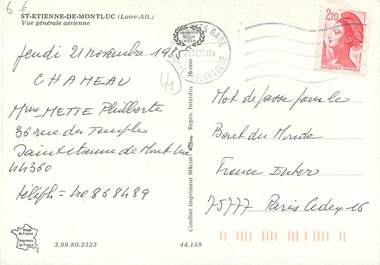 6 €
ST-ETIENNE-DE-MONTLUC (Loire-Atl.)
Vue générale aérienne
Jeudi 21 novembre 1985
CHAMEAU
Mme METTE Philiberte
36 rue du Temple
Saint Etienne de Mont Luc
44360
téléph = 40 868489
3.99.80.2523
44.158
Combier Imprimeur Mâcon
Repro. Interdite
2,20
Mot de passe pour le
Bout du Monde
France Inter
75777 Paris Cedex 16